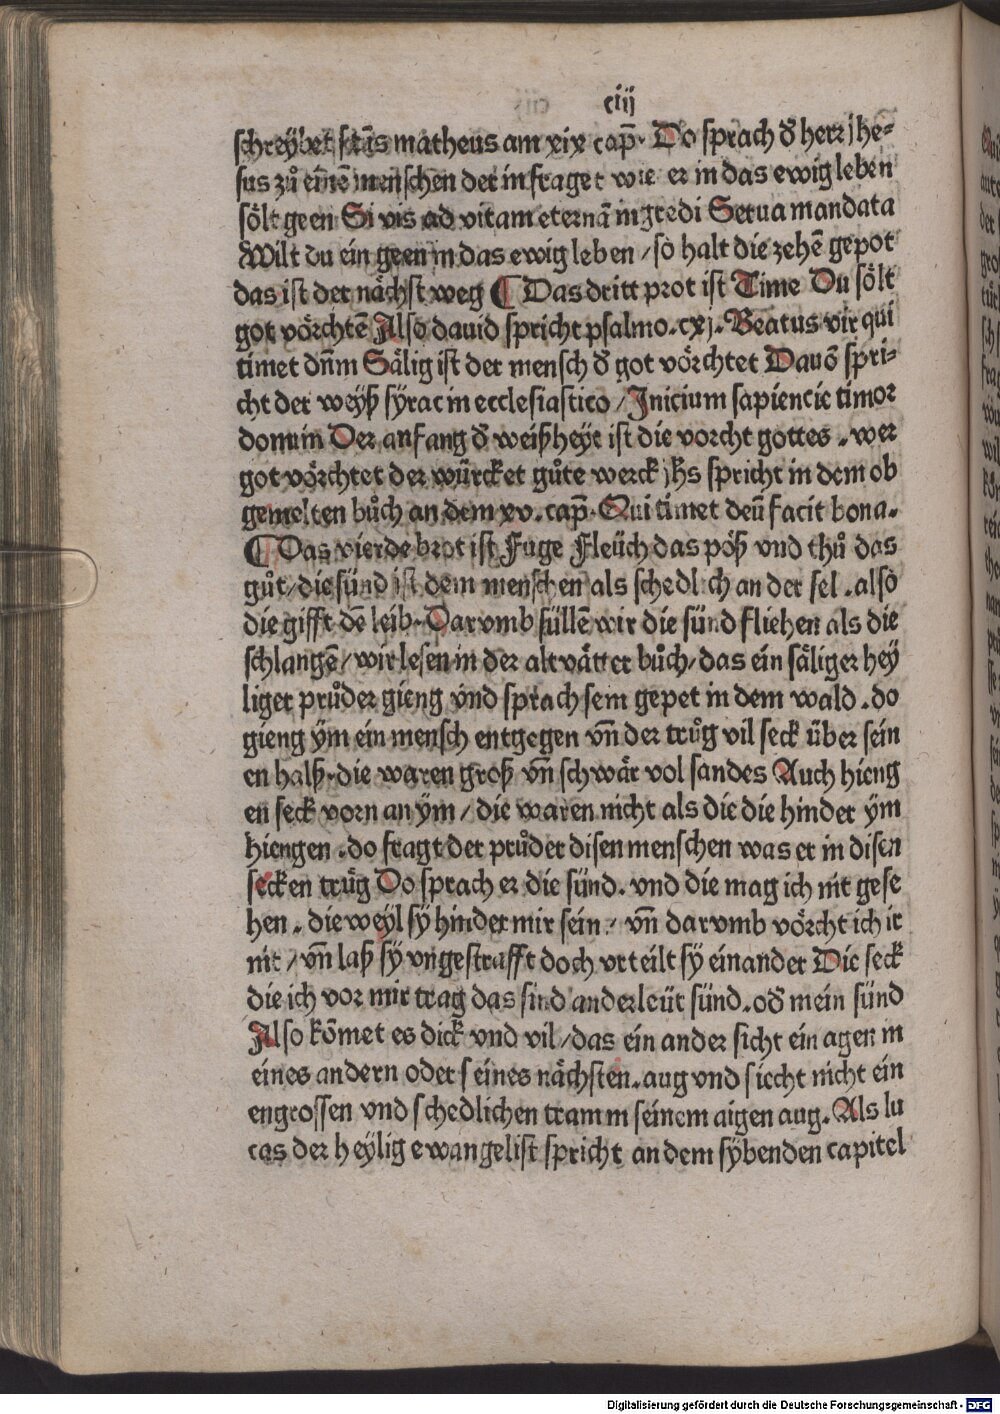 ciij
schreÿbet sctūs matheus am xix cap̄. Do sprach ð herr jhe⸗
sus zů einē menschen der in fraget wie er in das ewig leben
sölt geen Si vis ad vitam eternā ingredi Serua mandata
Wilt du ein geen in das ewig leben / so halt die zehē gepot
das ist der nächst weg ¶ Das dritt prot ist Time Du sölt
got vörchtē Also dauid spricht psalmo. cxj. Beatus vir qui
timet dn̄m Sälig ist der mensch ð got vörchtet Dauō spri⸗
cht der weyß syrac in ecclesiastico / Inicium sapiencie timor
domini Der anfang ð weißheyt ist die vorcht gottes . wer
got vörchtet der würcket gůte werck jhs spricht in dem ob
gemelten bůch an dem xv. cap̄. Qui timet deū facit bona.
¶ Das vierde brot ist Fuge Fleüch das pöß vnd thů das
gůt / die sünd ist dem menschen als schedlich an der sel . also
die gifft dē leib. Darvmb süllē wir die sünd fliehen als die
schlangē / wir lesen in der altvätter bůch / das ein säliger heÿ
liger průder gieng vnd sprach sein gepet in dem wald . do
gieng ÿm ein mensch entgegen vn̄ der trůg vil seck über sein
en halß. die waren groß vn̄ schwär vol sandes Auch hieng
en seck vorn an ÿm / die waren nicht als die die hinder ÿm
hiengen . do fragt der průder disen menschen was er in disen
secken trüg Do sprach er die sünd. vnd die mag ich nit gese
hen . die weÿl sÿ hinder mir sein / vn̄ darvmb vörcht ich ir
nit / vn̄ laß sÿ vngestrafft doch vrteilt sÿ einander Die seck
die ich vor mir trag das sind anderleüt sünd. oð mein sünd
Also kōmet es dick vnd vil / das ein ander sicht ein agen in
eines andern oder seines nächsten. aug vnd siecht nicht ein
engrossen vnd schedlichen tram in seinem aigen aug. Als lu
cas der heÿlig ewangelist spricht an dem sÿbenden capitel
Digitalisierung gefördert durch die Deutsche Forschungsgemeinschaft - DFG